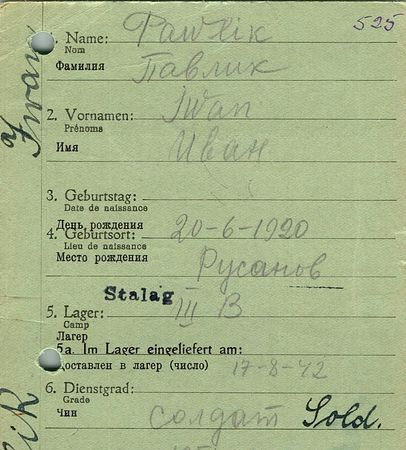 525
1. Name: Pawlik
Nom
Фамилия Павлик
2. Vornamen: Iwan
Prénoms
Имя Иван
3. Geburtstag:
Date de naissance
День рождения 20-6-1920
4. Geburtsort:
Lieu de naissance
Место рождения Русанов
Stalag
5. Lager: III B
Camp
Лагерь
5a. Im Lager eingeliefert am:
Доставлен в лагер (число) 17-8-42
6. Dienstgrad:
Grade
Чин солдат Sold.
Iwan